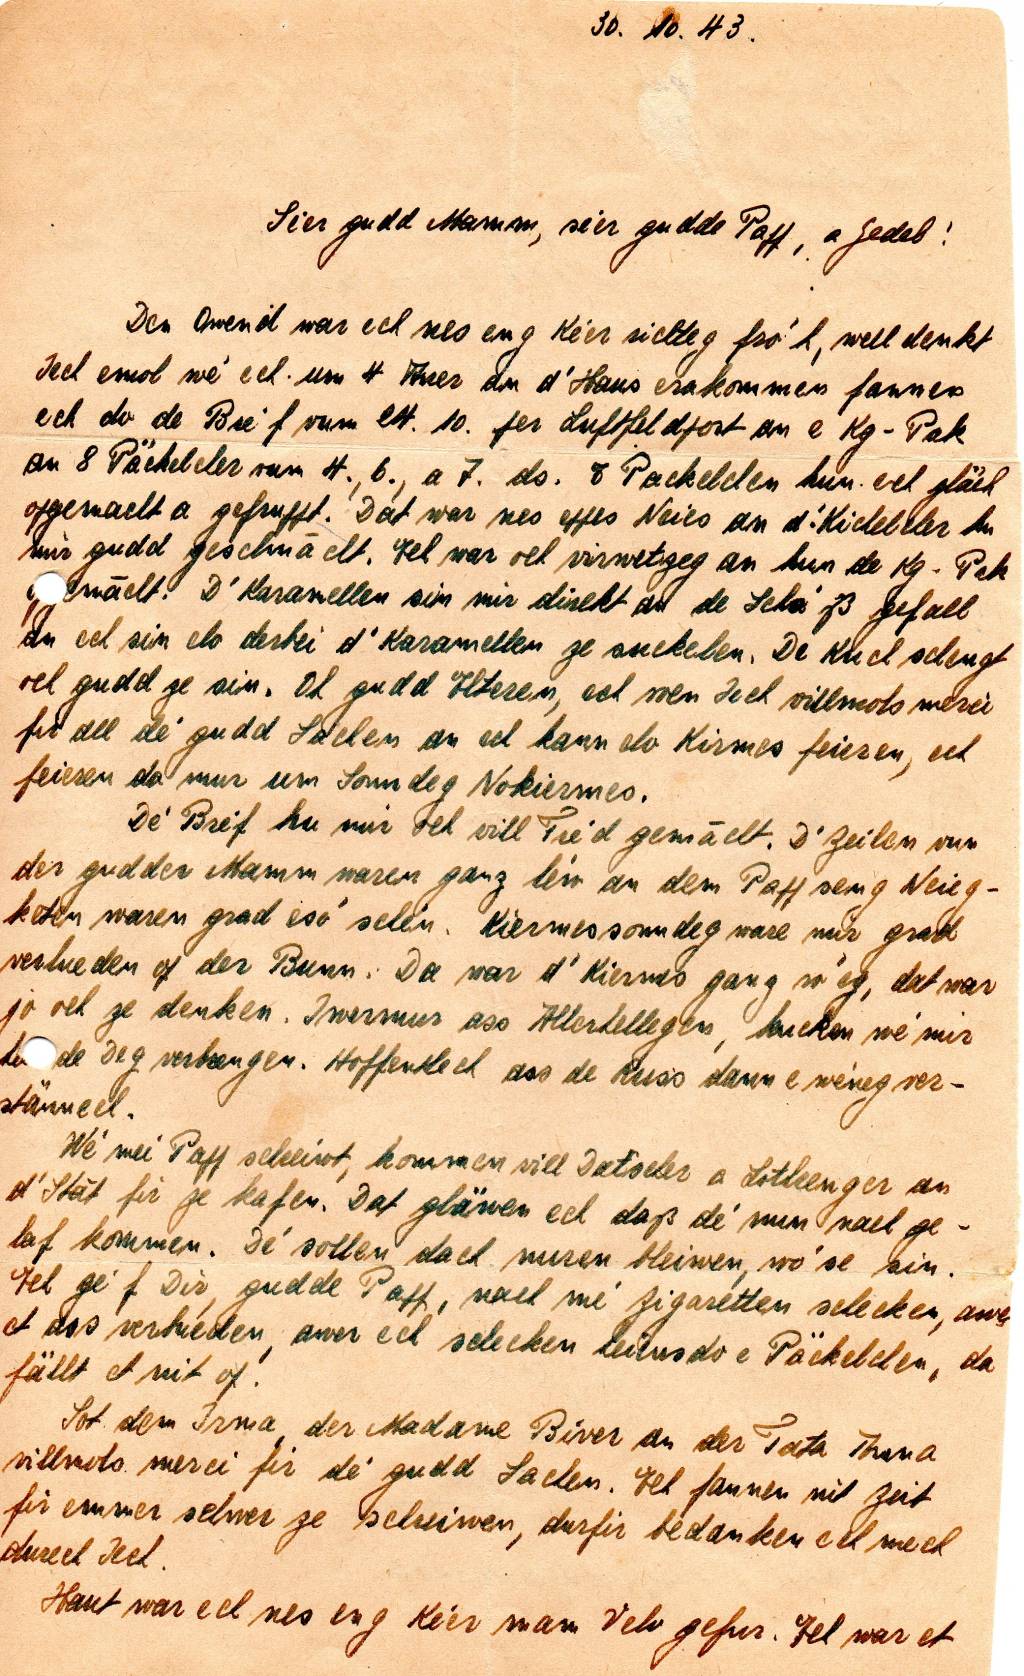 30. 10. 43.
Sier gudd Mamm, sèier gudde Papp, a Jedeb!
Den Owend war ech nes eng Kéier richteg fro'h, well denkt
Iech emol we' ech um 4 Auer an d'Haus erakommen fannen
ech do de Bréif vum 24. 10. per Luftfeldpost an e Kg-Pak
an 8 Päckelcher vum 4., 6., a 7. ds. 8 Päckelchen hun ech gläich
opgemacht a gefrupft. Dat war nes eppes Neies an d'Kichelcher hu
mir gudd geschmācht. Ech war och virwetzeg an hun de Kg-Pak
gemācht. D'Karamellen sin mir direkt an de Schóß gefall
an ech sin elo derbei d'Karamellen ze suckelen. De Kuch schengt
och gudd ze sin. Oh gudd Elteren, ech soen Iech villmols merci
fir all de' gudd Sachen an ech kann elo Kirmes feieren, ech
feieren da mur um Sonndeg Nokiermes.
De' Bréif hu mir och vill Fréd gemācht. D'Zeilen vun
der gudder Mamm waren ganz léiw an dem Papp seng Neieg-
keten waren grad eso' schéin. Kiermessonndeg ware mir grad
verlueden op der Bunn. Da war d'Kiermes ganz ro'eg, dat war
jo och ze denken. Iwermur ass Allerhellegen, kucken we' mir
de Deg verbrengen. Hoffentlech ass de Russ dann e wéineg ver-
stänneg.
We' mei Papp schreiwt, kommen vill Däitscher a Lothrenger an
d'Stāt fir ze kafen. Dat gläwen ech daß de' nun nach ge-
laf kommen. De' sollen dach nuren bleiwen, wo' se sin.
Ech ge'f Dir, gudde Papp, nach me' Zigaretten schecken, awer
et ass verbueden, awer ech schecken heiansdo e Päckelchen, da
fällt et nit op.
Sot dem Irma, der Madame Biver an der Tata Anna
villmols merci fir de' gudd Sachen. Ech fannen nit Zeit
fir emmer selwer ze schreiwen, dorfir bedanken ech mech
durech Iech.
Haut war ech nes eng Kéier mam Velo gefuer. Ech war et